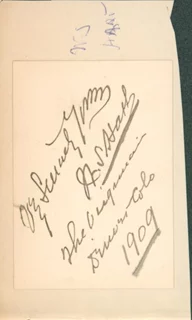 WS
HART
Sincerely Yours
W S Hart
The Virginian
Denver Colo
1909